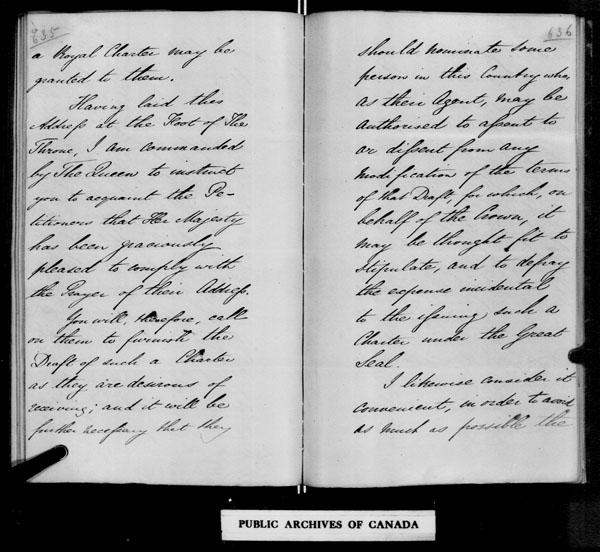 635
a Royal Charter may be
granted to them.
Having laid this
Address at the Foot of The
Throne, I am commanded
by The Queen to instruct
you to acquaint the Pe-
titioners that Her Majesty
has been graciously
pleased to comply with
the Prayer of their Address.
You will, therefore, call
on them to furnish the
Draft of such a Charter
as they are desirous of
receiving; and it will be
further necessary that they
636
should nominate some
person in this Country who,
as their Agent, may be
authorised to assent to
or dissent from any
modification of the terms
of that Draft, for which, on
behalf of the Crown, it
may be thought fit to
stipulate, and to defray
the expense incidental
to the issuing such a
Charter under the Great
Seal.
I likewise consider it
convenient, in order to avoid
as much as possible the
PUBLIC ARCHIVES OF CANADA